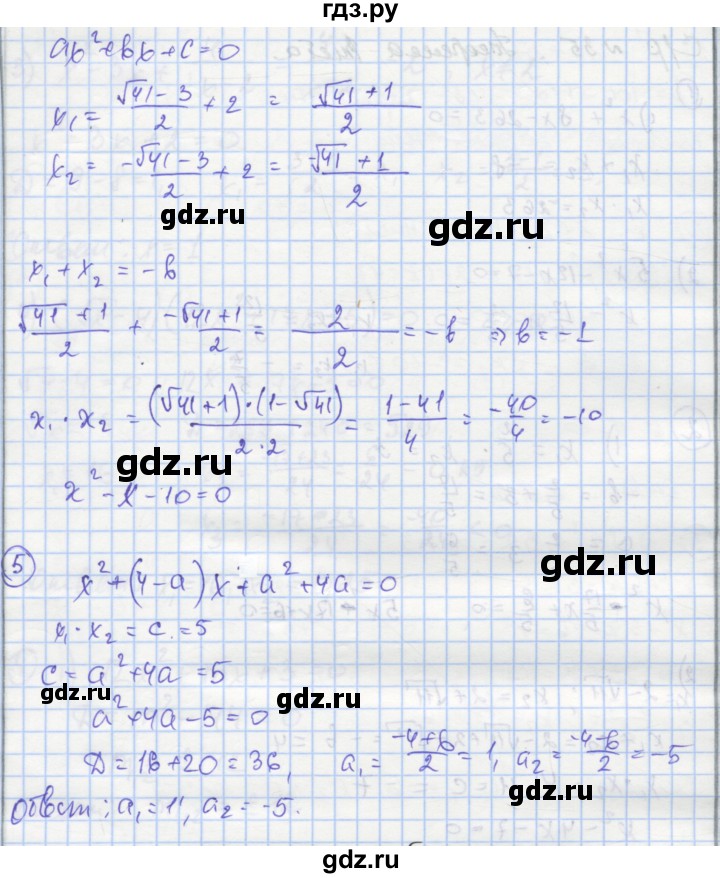 гдз.ру
ab²+bb+c=0
x₁ = (√41 − 3)/2 + 2 = (√41 + 1)/2
x₂ = (−√41 − 3)/2 + 2 = (−√41 + 1)/2
gdz.ru gdz.ru
x₁ + x₂ = −b
(√41 + 1)/2 + (−√41 + 1)/2 = 2/2 = −b ⇒ b = −1
x₁ · x₂ = ((√41+1)·(1−√41))/(2·2) = (1−41)/4 = −40/4 = −10
gdz.ru gdz.ru
x² − x − 10 = 0
5 x² + (4−a)x + a² + 4a = 0
x₁ · x₂ = c = 5
c = a² + 4a = 5
gdz.ru gdz.ru
a² + 4a − 5 = 0
Д = 16 + 20 = 36, a₁ = (−4+6)/2 = 1, a₂ = (−4−6)/2 = −5
Ответ: a₁ = 1, a₂ = −5.
gdz.ru gdz.ru
gdz.ru